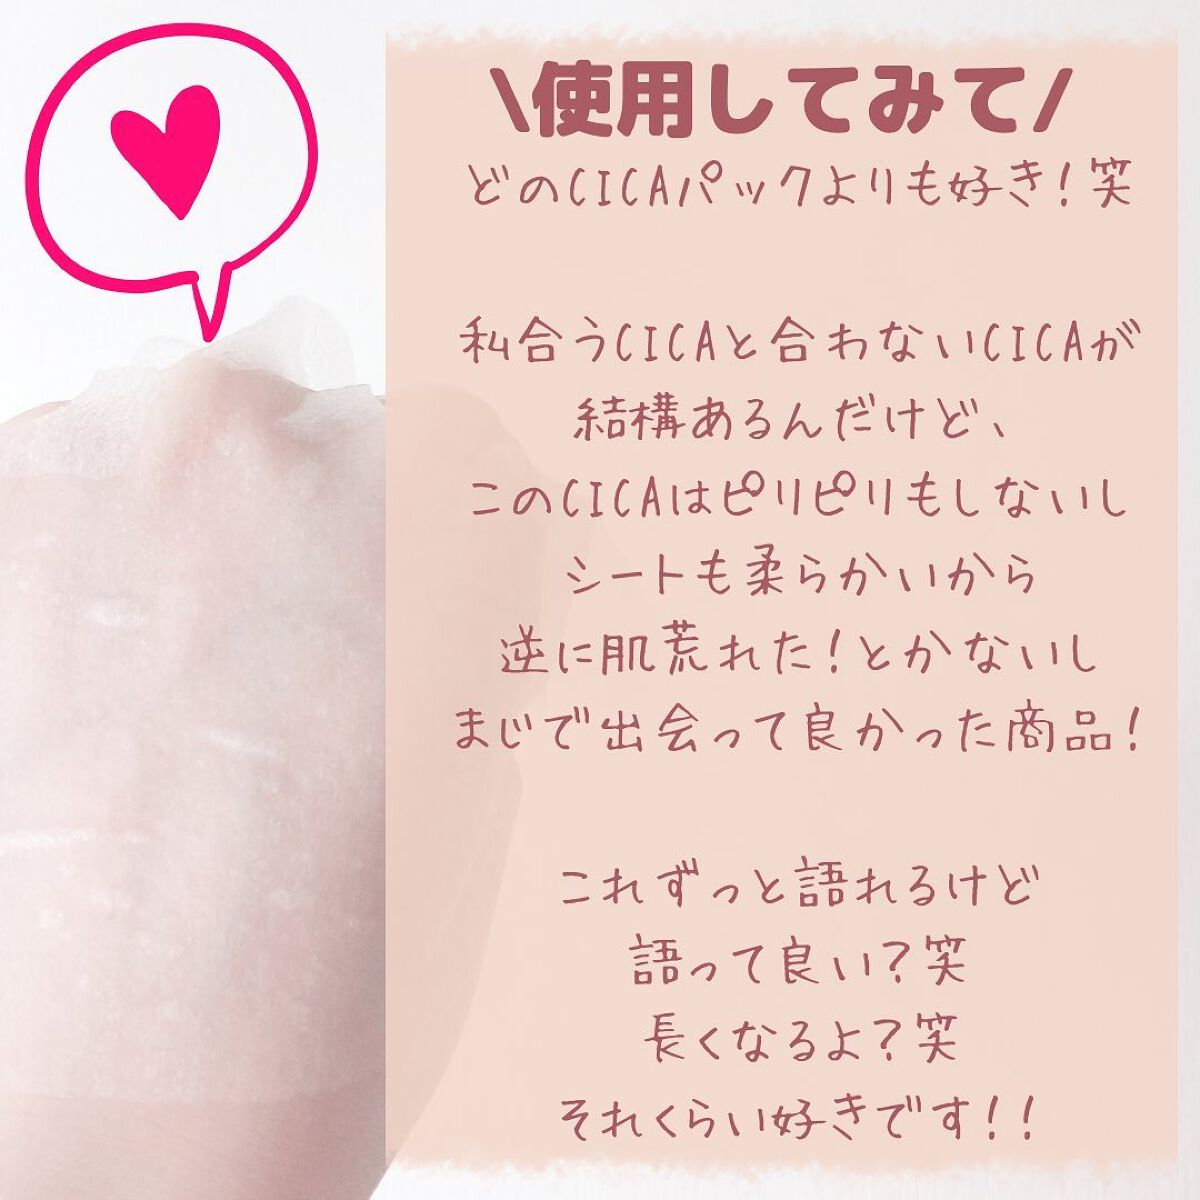 \使用してみて/
どのCICAパックよりも好き！笑
私合うCICAと合わないCICAが
結構あるんだけど、
このCICAはピリピリもしないし
シートも柔らかいから
逆に肌荒れた！とかないし
まじで出会って良かった商品！
これずっと語れるけど
語って良い？笑
長くなるよ？笑
それくらい好きです！！